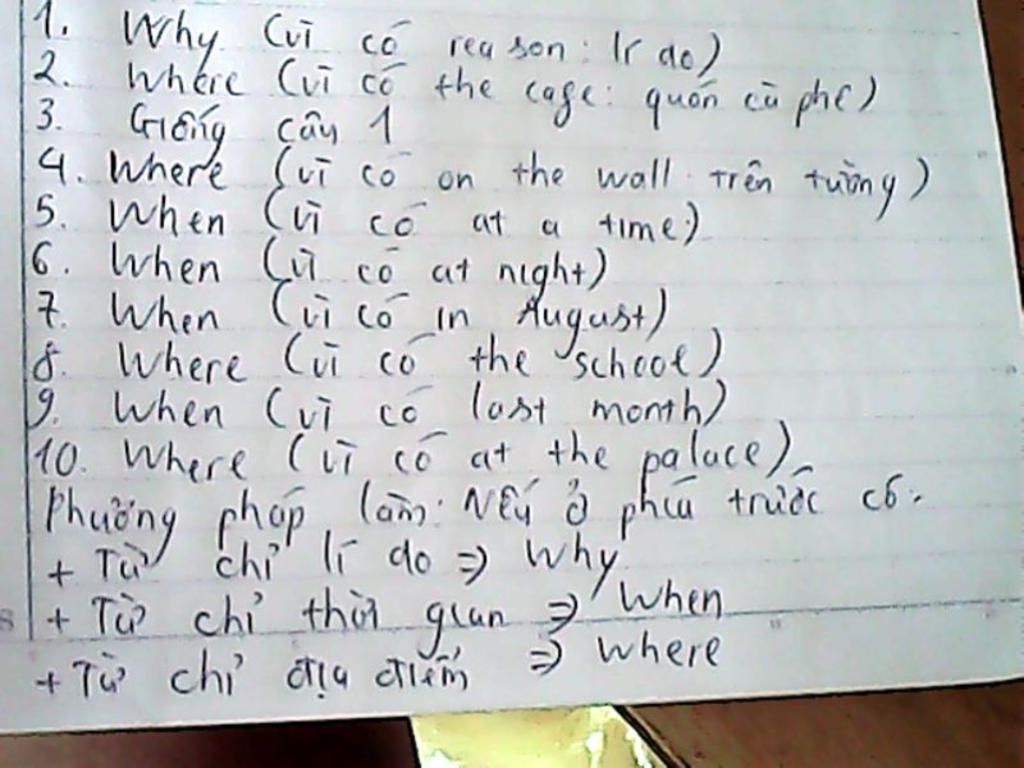 1. Why (vì có reason: lí do)
2. Where (vì có the cafe: quán cà phê)
3. Giống câu 1
4. Where (vì có on the wall: trên tường)
5. When (vì có at a time)
6. When (vì có at night)
7. When (vì có in August)
8. Where (vì có the school)
9. When (vì có last month)
10. Where (vì có at the palace)
Phương pháp làm: Nếu ở phía trước có.
+ Từ chỉ lí do => Why
+ Từ chỉ thời gian => When
+ Từ chỉ địa điểm => Where